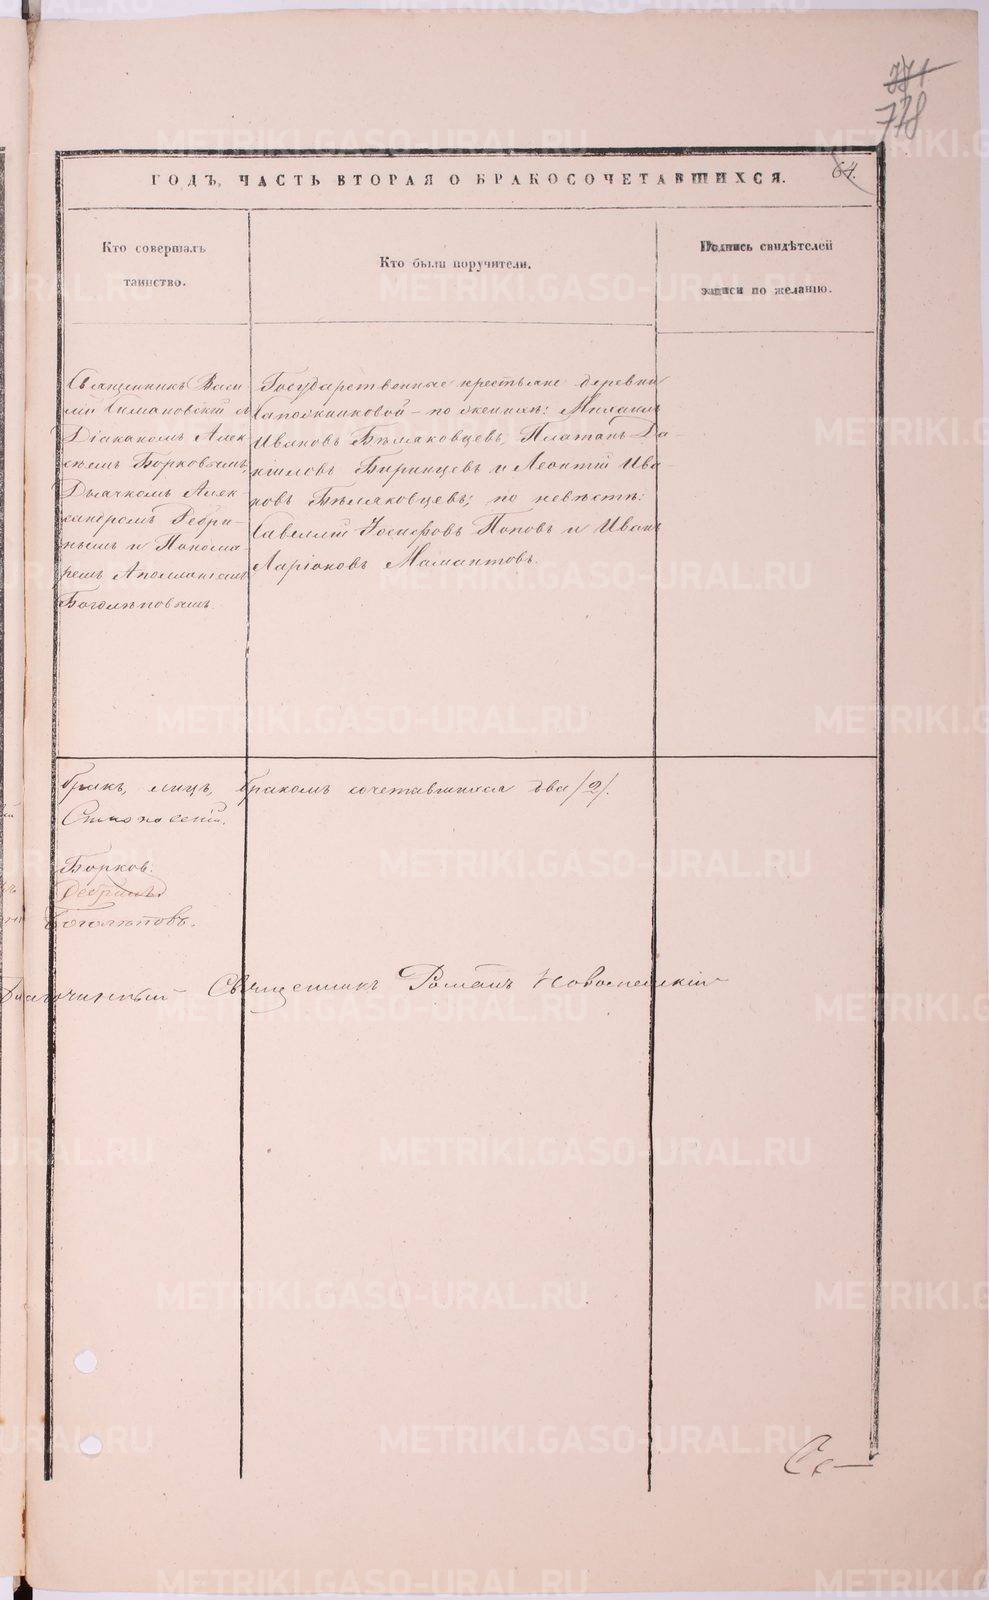 771
778
ГОДЪ, ЧАСТЬ ВТОРАЯ О БРАКОСОЧЕТАВШИХСЯ.
64.
Кто совершалъ
таинство.
Кто были поручители.
Подпись свидѣтелей
записи по желанію.
Священникъ Васи
лій Симановскій съ
Діакономъ Алек
сѣемъ Борковымъ,
Дьячкомъ Алек-
сандромъ Дебри-
нымъ и Понома-
ремъ Аполлономъ
Боголѣповымъ.
Государственные крестьяне деревни
Сапожниковой – по женихѣ: Михаилъ
Ивановъ Бѣляковцевъ, Платонъ Да-
ниловъ Биринцевъ и Леонтій Ива-
новъ Бѣляковцевъ; по невѣстѣ:
Савелій Іосифовъ Поповъ и Иванъ
Ларіоновъ Мамонтовъ.
бракъ, лицъ, бракомъ сочетавшихся два /2/.
Борковъ.
Дебринъ
Боголѣповъ.
Благочинный Священникъ Романъ
METRIKI.GASO-URAL.RU